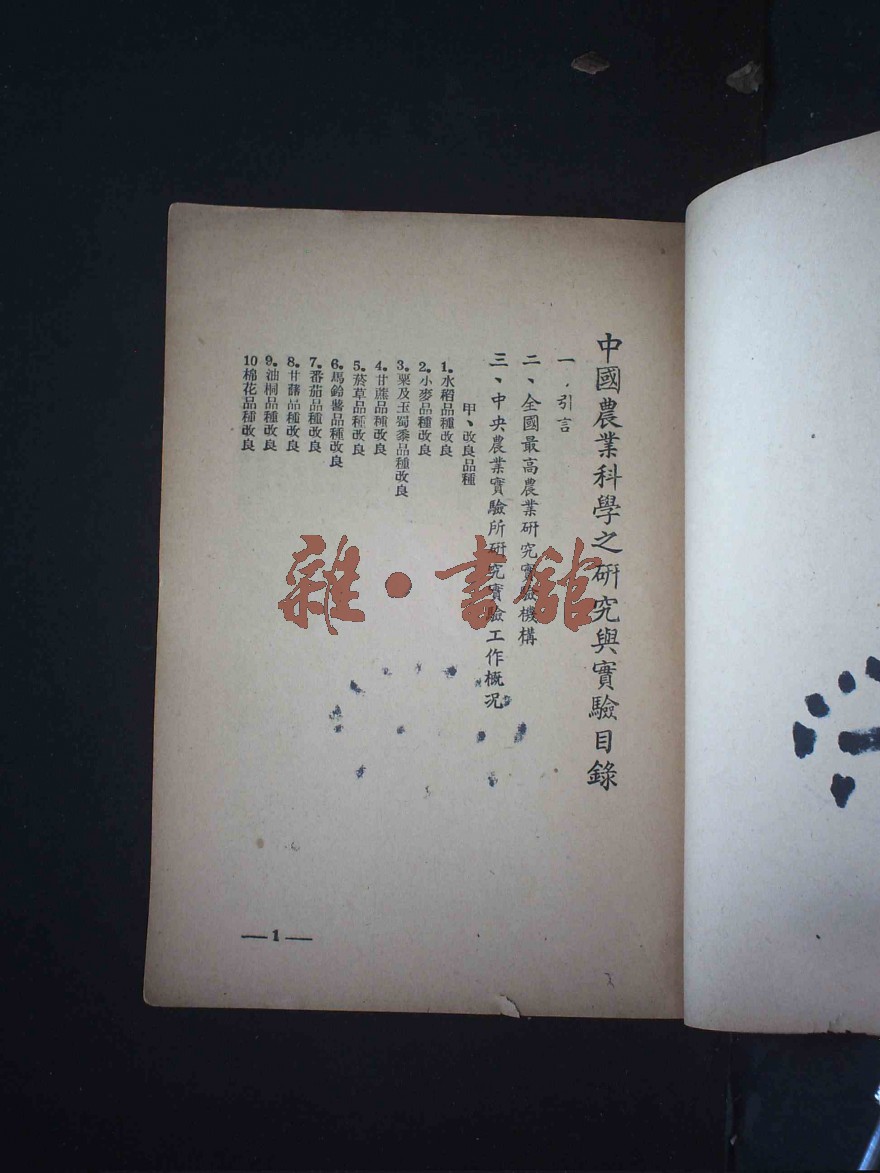 中國農業科學之研究與實驗目錄
一、引言
二、全國最高農業研究實驗機構
三、中央農業實驗所研究實驗工作概况
甲、改良品種
1.水稻品種改良
2.小麥品種改良
3.粟及玉蜀黍品種改良
4.甘蔗品種改良
5.菸草品種改良
6.馬鈴薯品種改良
7.番茄品種改良
8.甘藷品種改良
9.油桐品種改良
10棉花品種改良
—1—
雜·書館